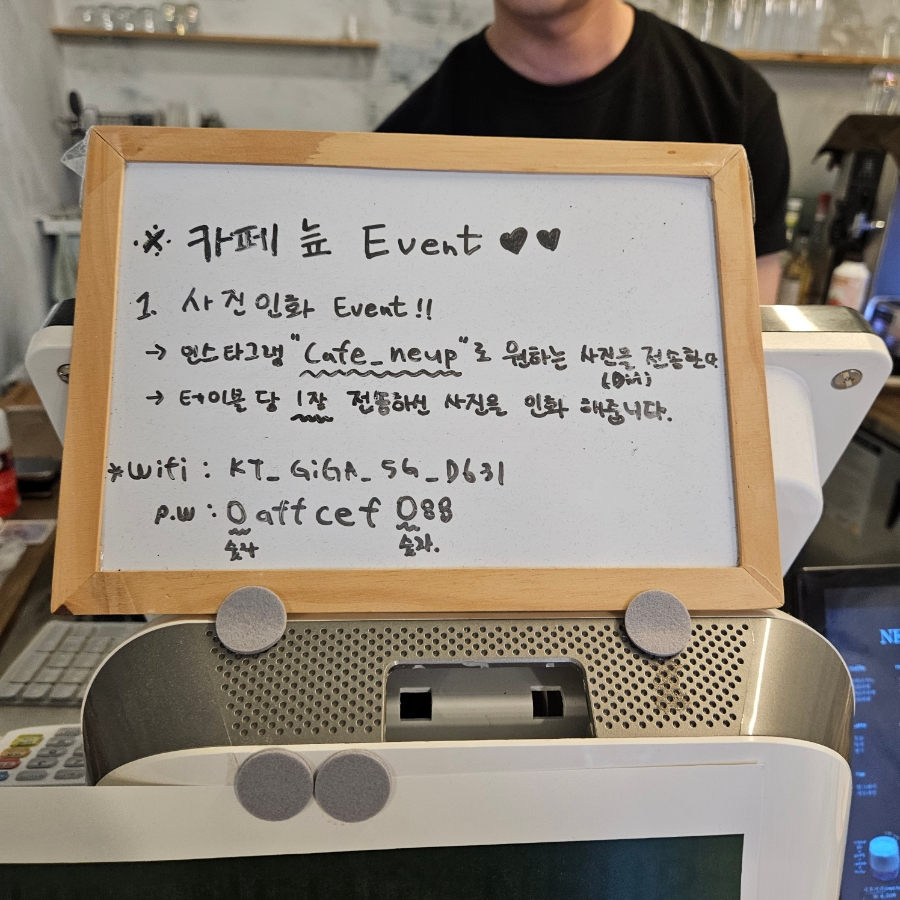 ※ 카페 늎 Event ♥♥
1. 사진인화 Event!!
→ 인스타그램 "Cafe_neup"로 원하는 사진을 전송한다.
(DM)
→ 테이블 당 1장 전송하신 사진을 인화 해줍니다.
*Wifi : KT_GiGA_5G_D631
P.W : 0affcef088
숫자 숫자.
NE